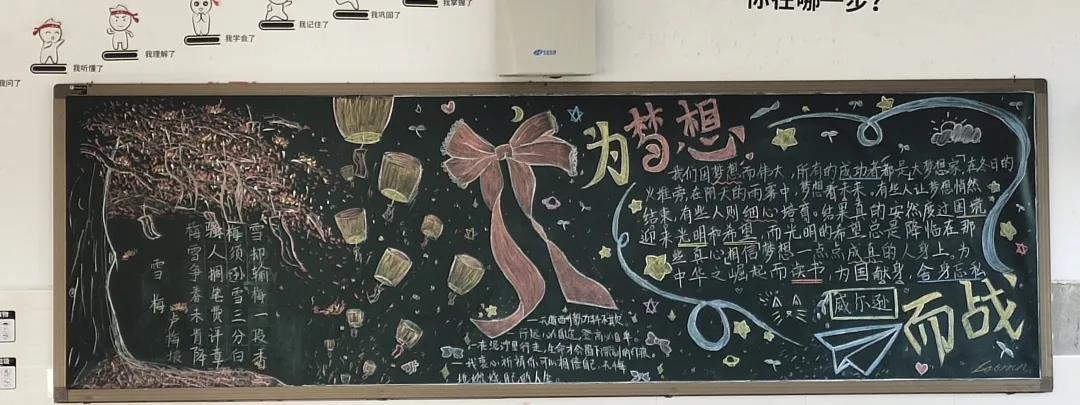 你在哪一步？
我掌握了
我巩固了
我记住了
我学会了
我理解了
我听懂了
我问了
为梦想
而战
我们因梦想而伟大，所有的成功者都是大梦想家，在冬日的
火堆旁，在阴天的雨雾中，梦想着未来，有些人让梦想悄然
结束，有些人则细心培育。结果真的安然度过困境
迎来光明和希望，而光明的希望总是降临在那
些真心相信梦想一点点成真的人身上，为
中华之崛起而读书，为国献身，舍身忘私
威尔逊
雪梅
卢梅坡
梅雪争春未肯降
骚人搁笔费评章
梅须逊雪三分白
雪却输梅一段香
行远必自迩，登高必自卑。
一我衷心祈祷你可以相信自己，无悔
地燃烧自己的人生